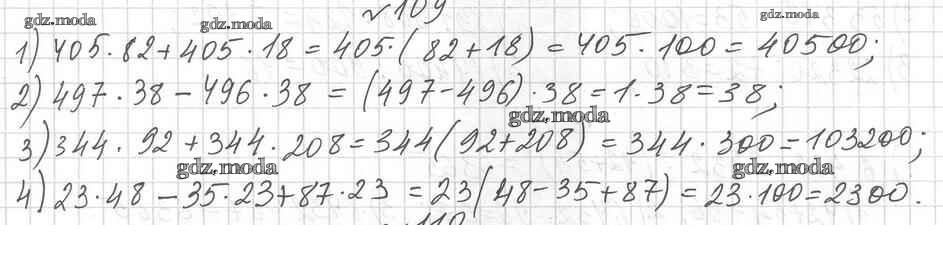 √109
gdz.moda gdz.moda gdz.moda
1) 405·82+405·18 = 405·(82+18) = 405·100 = 40500;
2) 497·38 – 496·38 = (497-496)·38=1·38=38;
gdz.moda
3) 344·92+344·208=344(92+208) = 344·300=103200;
gdz.moda gdz.moda
4) 23·48 – 35·23+87·23 = 23(48-35+87) = 23·100=2300.